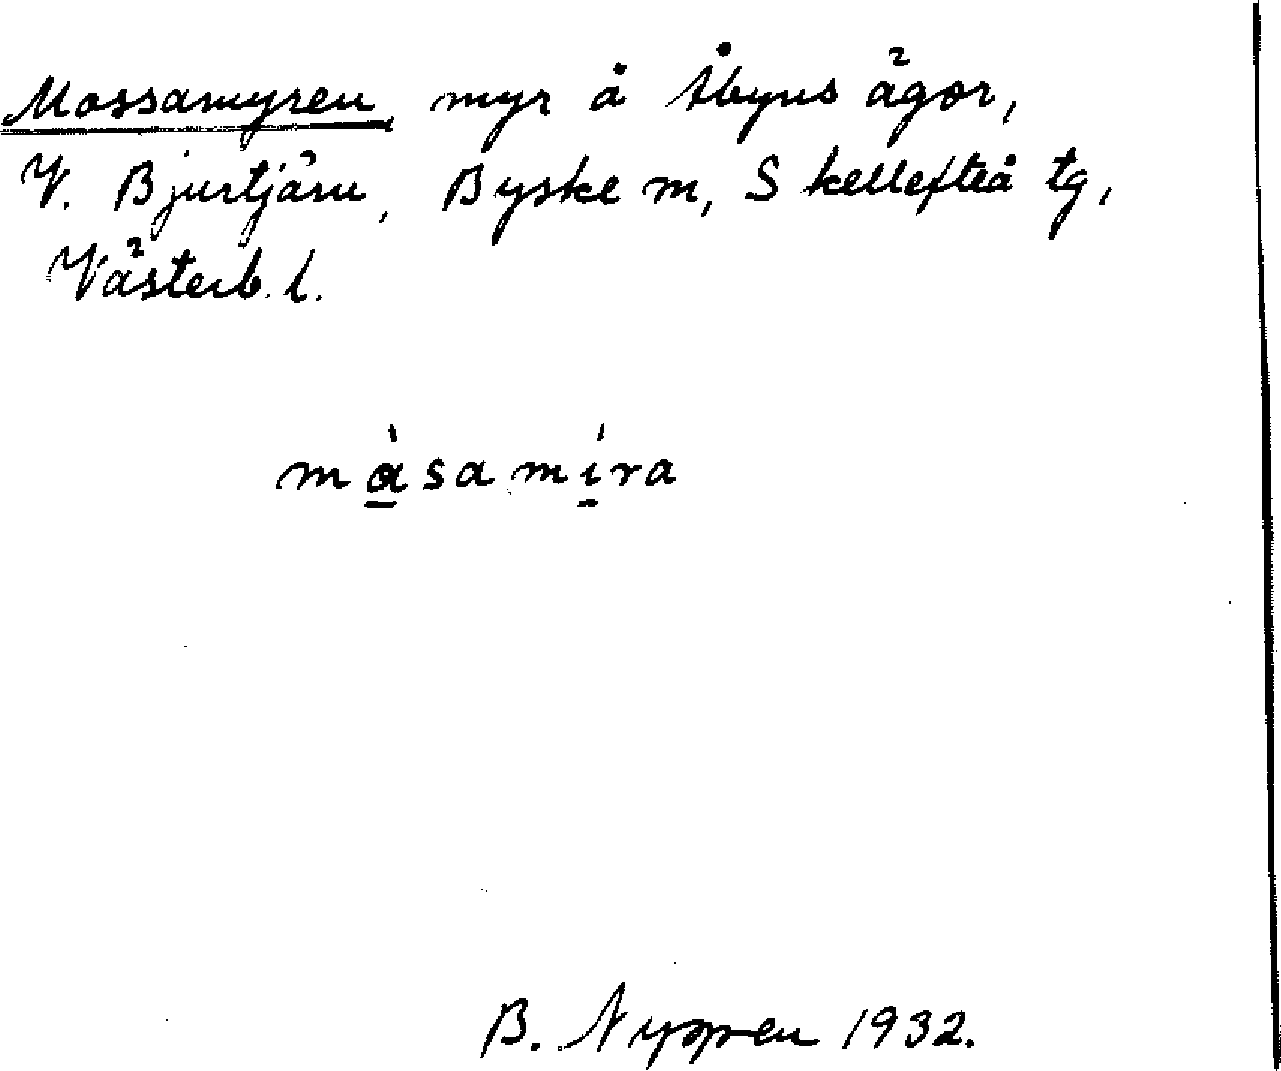 Mossamyren, myr å Åbyns ägor,
V. Bjurtjärn, Byske m, Skellefteå tg,
Västerb. l.
màsamíra
B. Nyppen 1932.